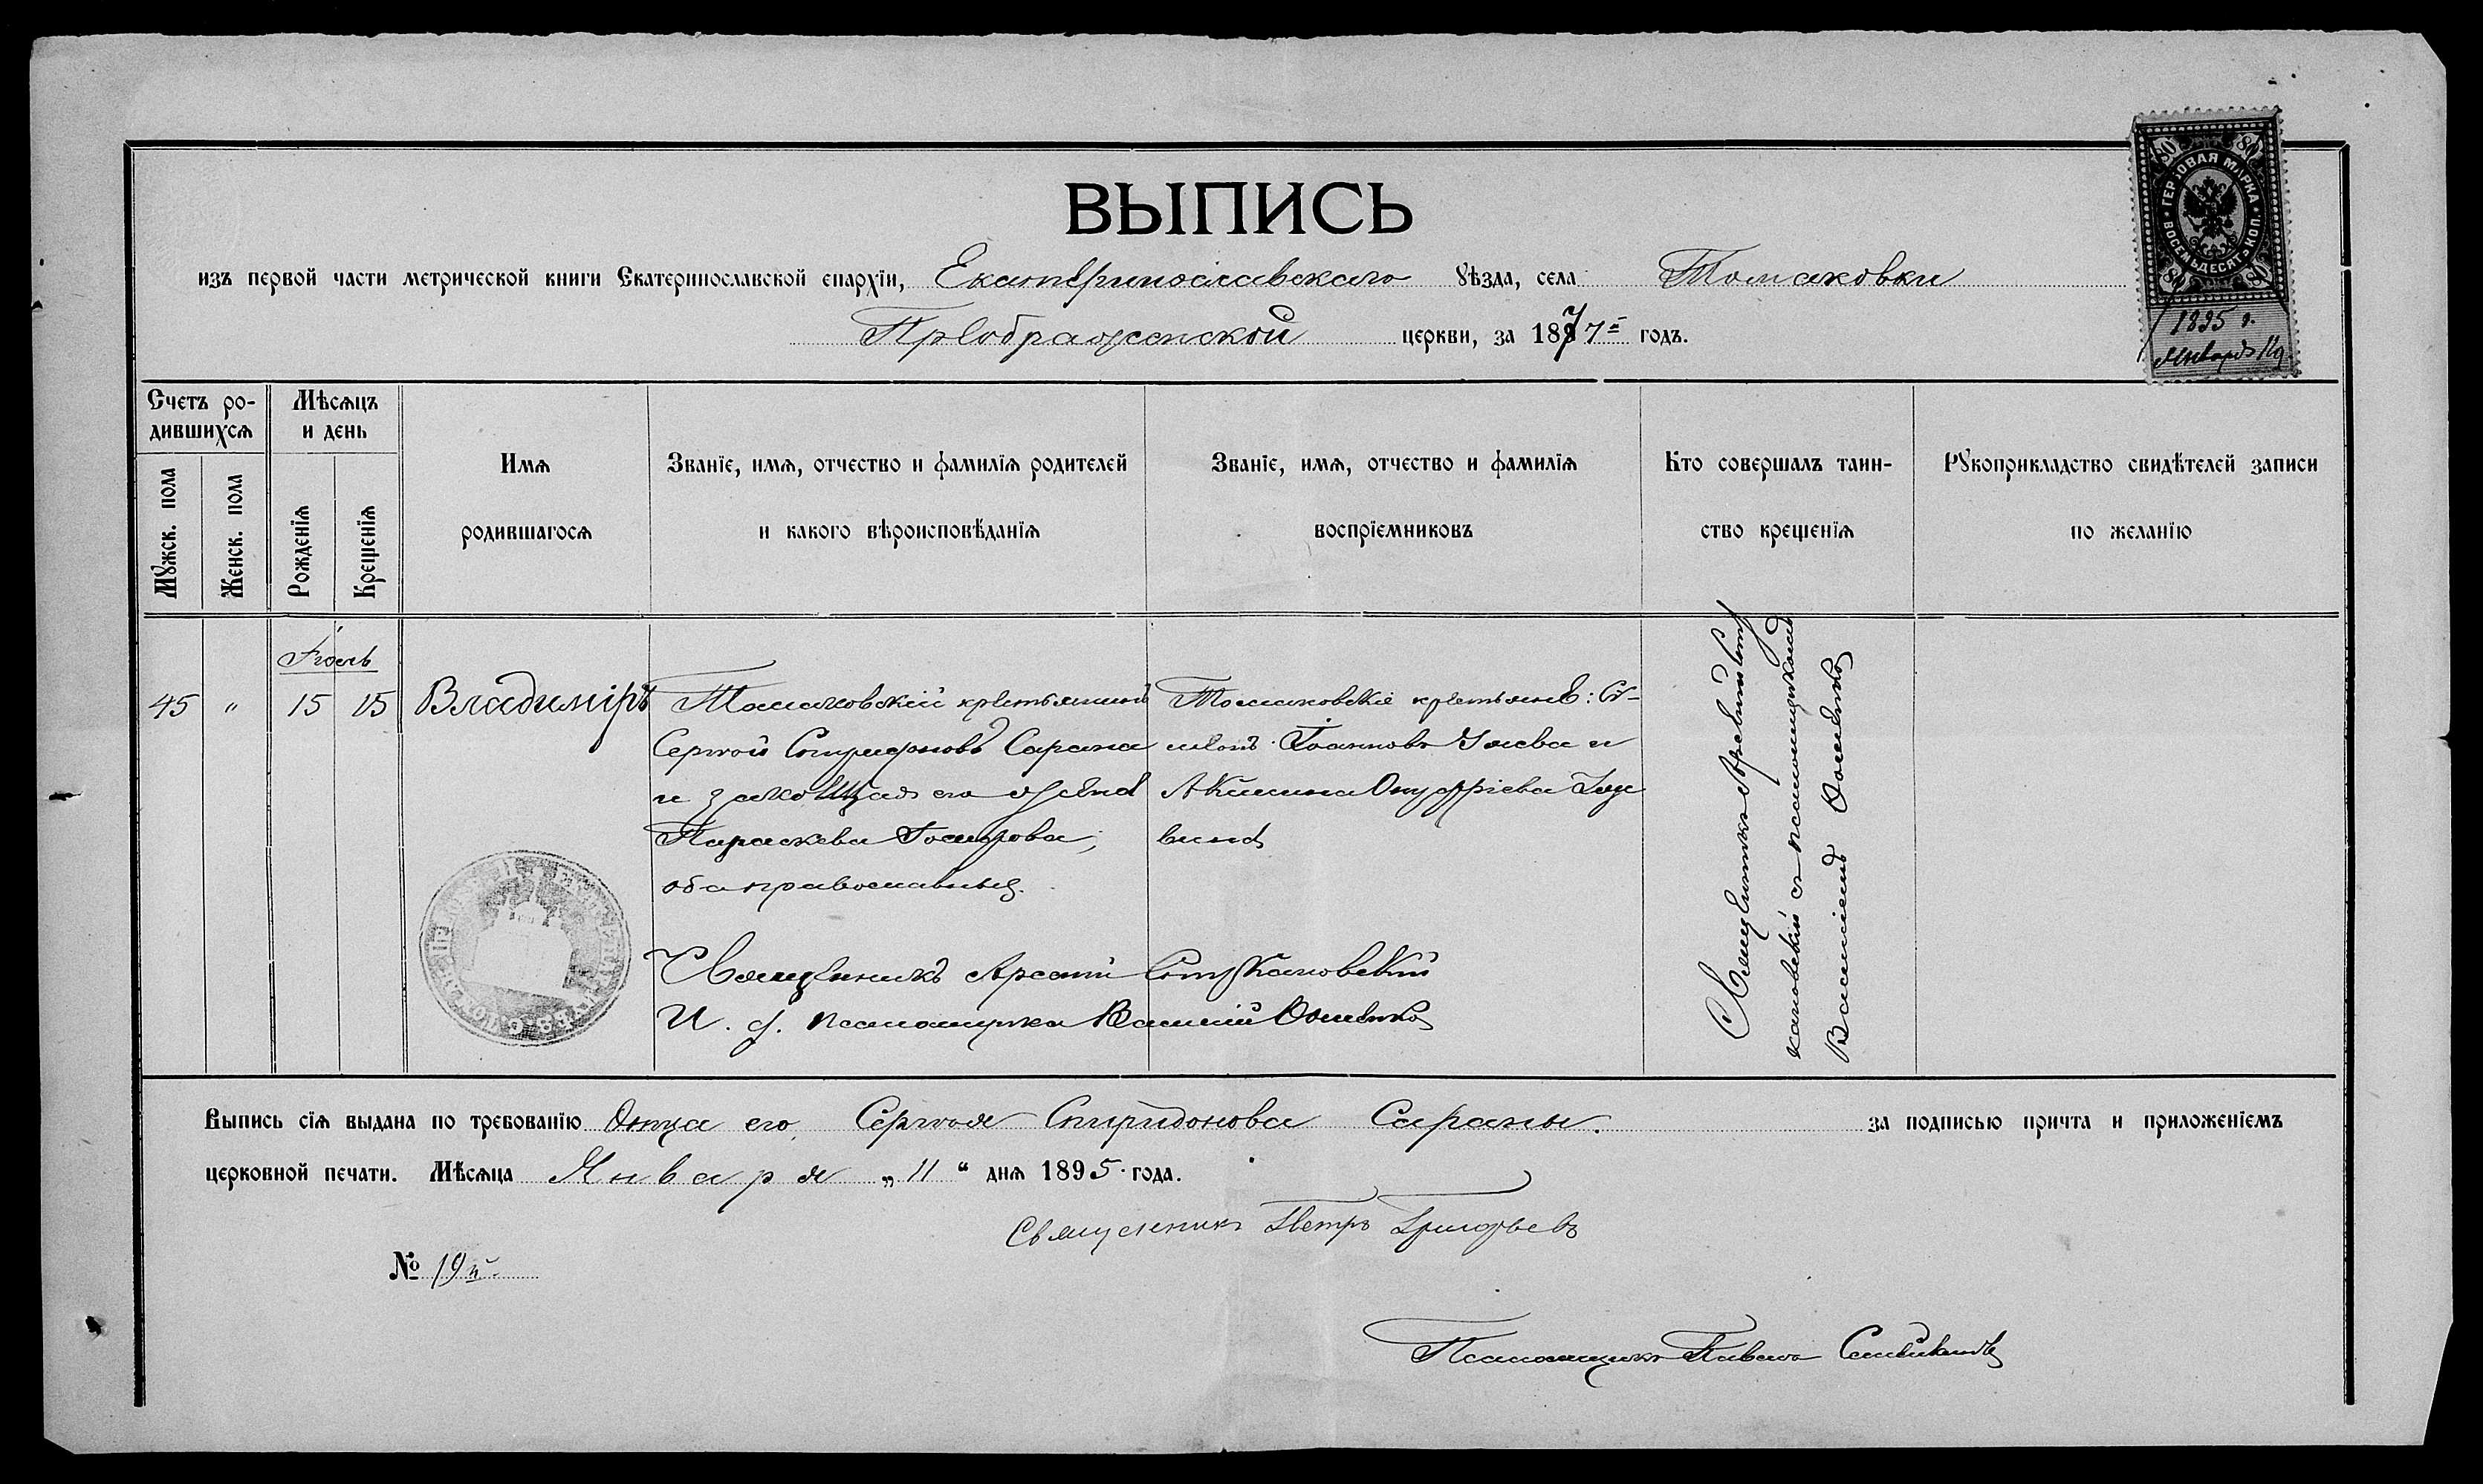 ВЫПИСЬ
изъ первой части метрической книги Екатеринославской епархіи, Екатеринославскаго уѣзда, села Томаковки
Преображенской церкви, за 1877й годъ.
ГЕРБОВАЯ МАРКА
ВОСЕМЬДЕСЯТЪ КОП.
80 80
80 80
1895 г.
Января 11 д.
Счетъ ро-
дившихся
Мужск. пола
Женск. пола
Мѣсяцъ
и день
Рожденія
Крещенія
Имя
родившагося
Званіе, имя, отчество и фамилія родителей
и какого вѣроисповѣданія
Званіе, имя, отчество и фамилія
воспріемниковъ
Кто совершалъ таин-
ство крещенія
Рукоприкладство свидѣтелей записи
по желанію
Іюль
45 " 15 15 Владиміръ
Томаковскій крестьянинъ
Сергѣй Спиридоновъ Сарана
и законная его жена
Параскева
оба православные.
Томаковскіе крестьяне: Си-
меонъ Іоанновъ и
Акилина Онуфріева
вина
Священникъ Арсеній Сту
кановскій съ псаломщикомъ
Василіемъ
Священникъ Арсеній Стукановскій
И. д. псаломщика Василій
Выпись сія выдана по требованію Отца его Сергѣя Спиридонова Сараны. за подписью причта и приложеніемъ
церковной печати. Мѣсяца Января „11“ дня 1895 года.
Священникъ Петръ Григорьевъ
№ 19й.
Псаломщикъ Павелъ